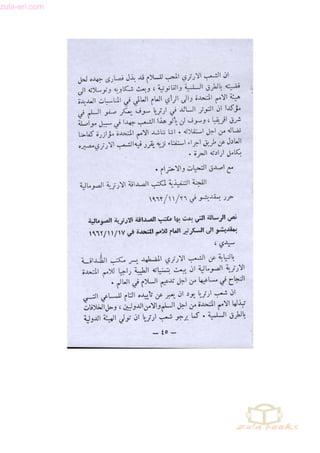 zula-eri.com
ان الشعب الارتري المحب للسلام قد بذل قصارى جهده لحل
قضيته بالطرق السلمية والقانونية ، وبعث شكاويه وتوسلاته الى
هيئة الامم المتحدة والى الرأي العام العالمي في المناسبات العديدة
مؤكدا ان التوتر السائد في ارتريا سوف يعكر صفو السلم في
شرق افريقيا ، وسوف لن يألو هذا الشعب جهدا في سبيل مواصلة
نضاله من اجل استقلاله • اننا نناشد الامم المتحدة مؤازرة كفاحنا
العادل عن طريق اجراء استفتاء نزيه يقرر فيه الشعب الارتري مصيره
بكامل ارادته الحرة •
مع اصدق التحيات والاحترام •
اللجنة التنفيذية لمكتب الصداقة الارترية الصومالية
حرر بمقديشو في ٢٦/١١/١٩٦٢
نص الرسالة التي بعث بها مكتب الصداقة الارترية الصومالية
بمقديشو الى السكرتير العام للامم المتحدة في ١٧/١١/١٩٦٢
سيدي ،
بالنيابة عن الشعب الارتري المضطهد يسر مكتب الصداقة
الارترية الصومالية ان يبعث بتمنياته الطيبة راجيا للامم المتحدة
النجاح في مساعيها من اجل تدعيم السلام في العالم •
ان شعب ارتريا يود ان يعبر عن تأييده التام للمساعي التي
تبذلها الامم المتحدة من اجل السلم والامن الدوليين ، وحل الخلافات
بالطرق السلمية • كما يرجو شعب ارتريا ان تولي الهيئة الدولية
— ٤٥ —
zula books